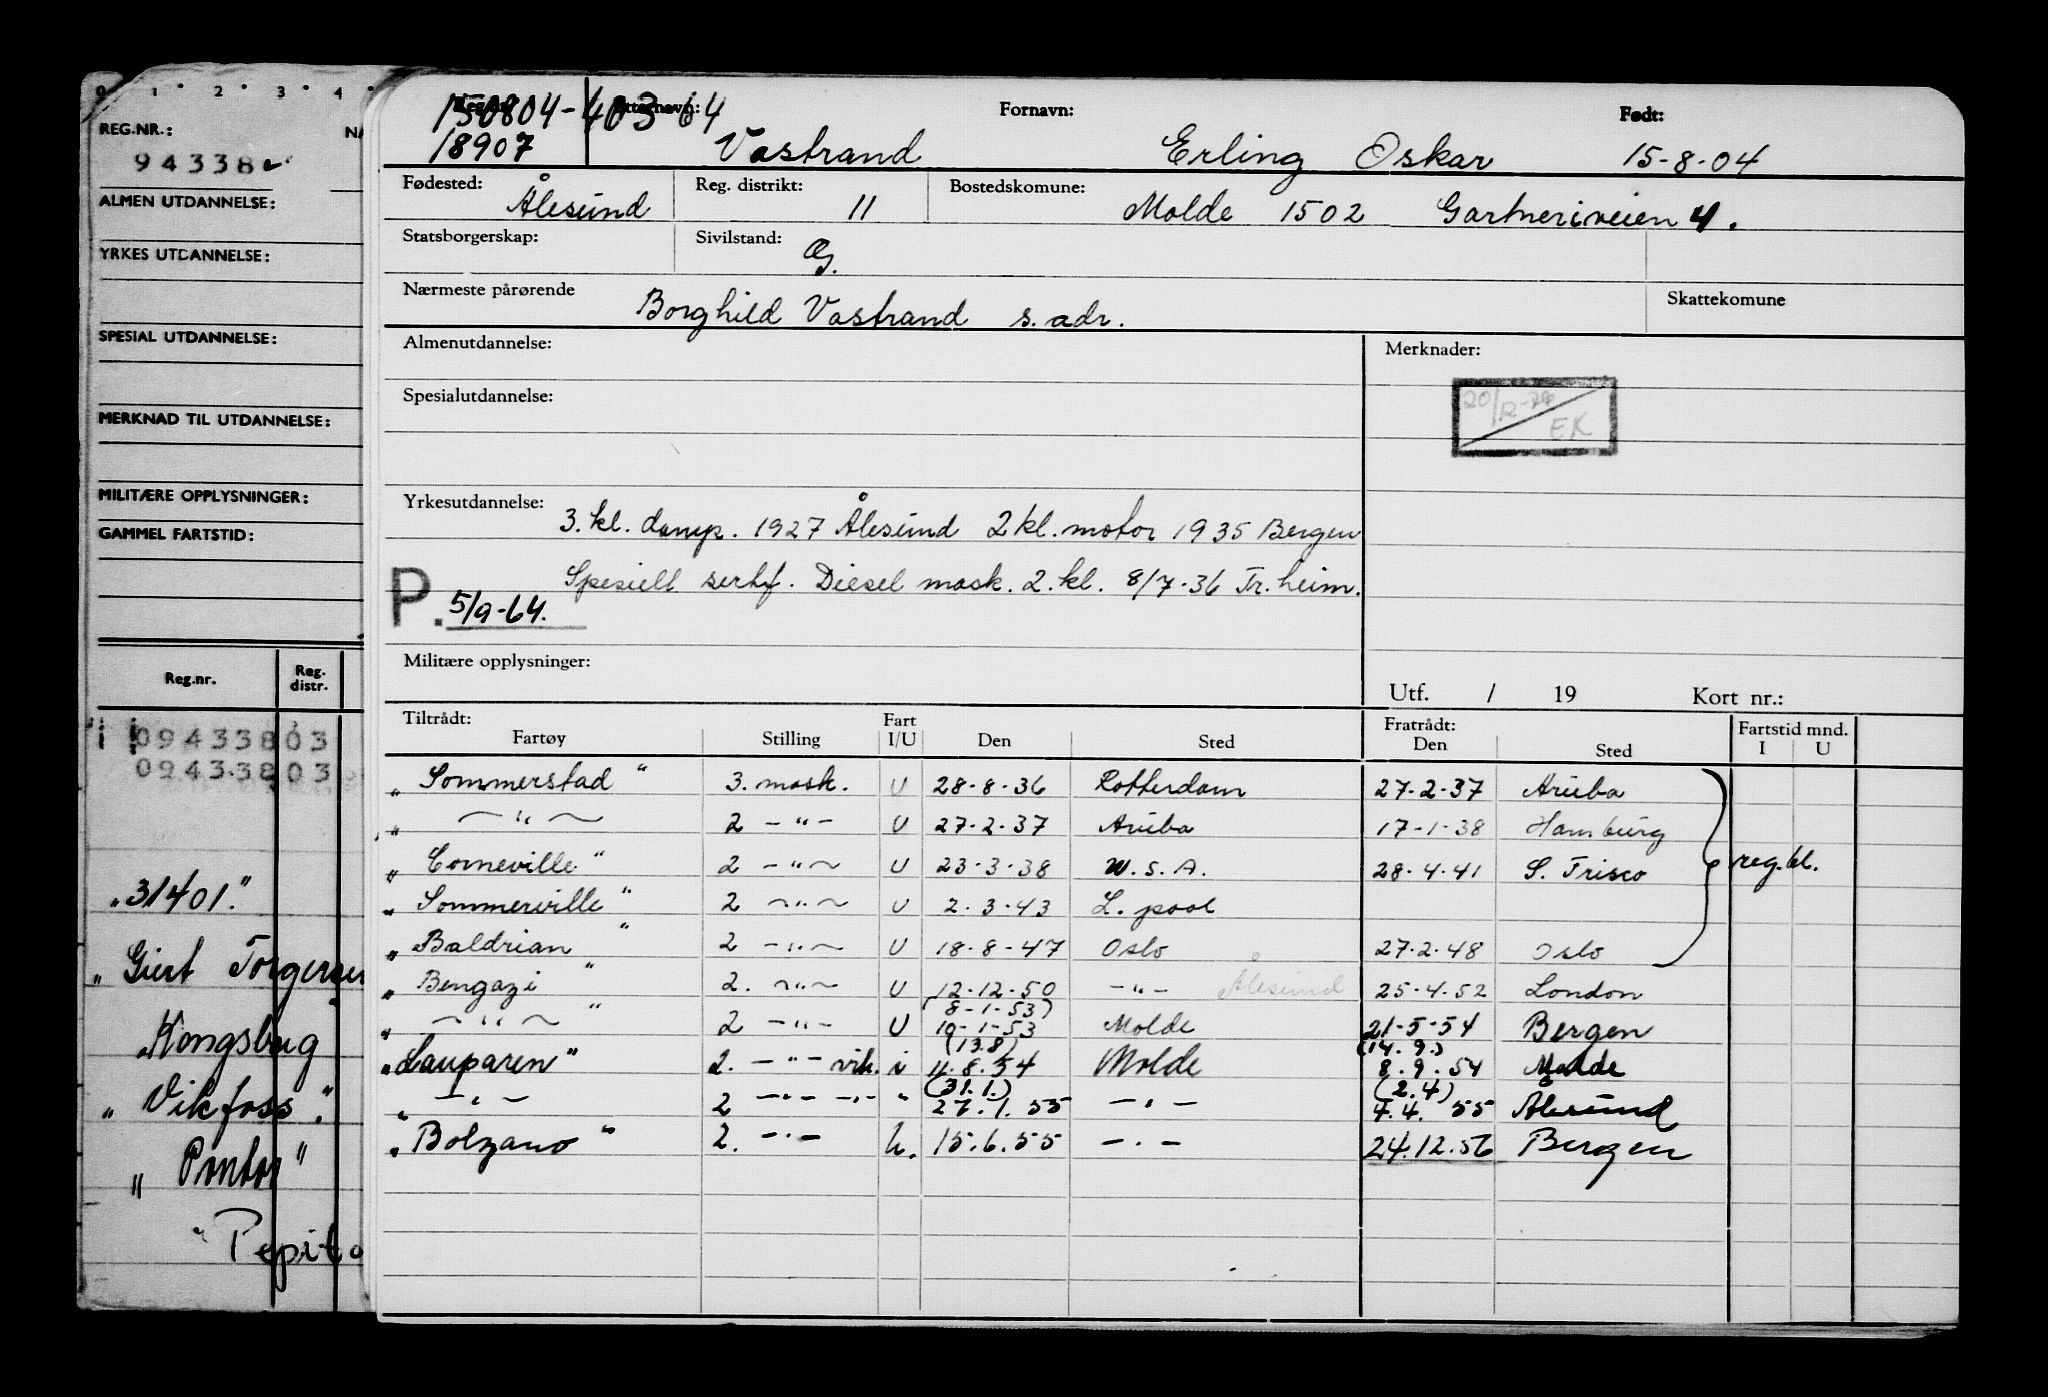 0 1 2 3 4
REG.NR.: NA
94338
ALMEN UTDANNELSE:
YRKES UTDANNELSE:
SPESIAL UTDANNELSE:
MERKNAD TIL UTDANNELSE:
MILITÆRE OPPLYSNINGER:
GAMMEL FARTSTID:
Reg.nr. Reg. distr.
094338 03
094338 03
"31401."
"Giert Torgersen
"Kongsbug
"Vikfoss".
"Pontos"
"Pepito
150804-403 64 Fornavn: Født:
18907 Vastrand Erling Oskar 15-8-04
Fødested: Ålesund Reg. distrikt: 11 Bostedskomune: Molde 1502 Gartneriveien 4.
Statsborgerskap: Sivilstand: G.
Nærmeste pårørende Borghild Vastrand s. adr. Skattekomune
Almenutdannelse: Merknader:
Spesialutdannelse: EK
Yrkesutdannelse: 3. kl. damp. 1927 Ålesund 2 kl. motor 1935 Bergen
Spesiell sertf. Diesel mask. 2. kl. 8/7-36 Tr.heim.
P. 5/9-64.
Militære opplysninger:
Utf. / 19 Kort nr.:
Tiltrådt: Fart Fratrådt: Fartstid mnd.
Fartøy Stilling I/U Den Sted Den Sted I U
"Sommerstad" 3. mask. U 28-8-36 Rotterdam 27-2-37 Aruba
" — " — 2 — " — U 27-2-37 Aruba 17-1-38 Hamburg
"Corneville" 2 — " — U 23-3-38 U.S.A. 28-4-41 S. Frisco reg.bl.
"Sommerville" 2 — " — U 2-3-43 L. pool
"Baldrian" 2 — " — U 18-8-47 Oslo 27-2-48 Oslo
"Bengazi" 2. — " — U 12-12-50 — " — Ålesund 25-4-52 London
(8-1-53)
" — " — " 2 — " — U 10-1-53 Molde 21-5-54 Bergen
(13.8) (14.9.)
"Lauparen" 2. — " — vik. i 11.8.54 Molde 8.9.54 Molde
(31.1.) (2.4)
" — " — 2 — " — — " — " 27.1.55 — " — 4.4.55 Ålesund
"Bolzano" 2. — " — U. 15.6.55 — " — 24.12.56 Bergen